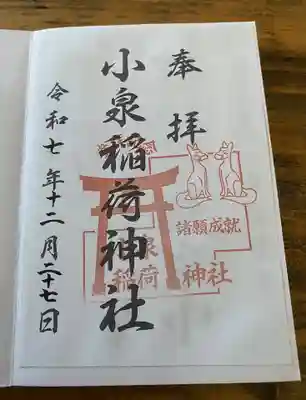 奉拝
小泉稲荷神社
令和七年十二月二十七日
諸願成就
泉
稲荷神社